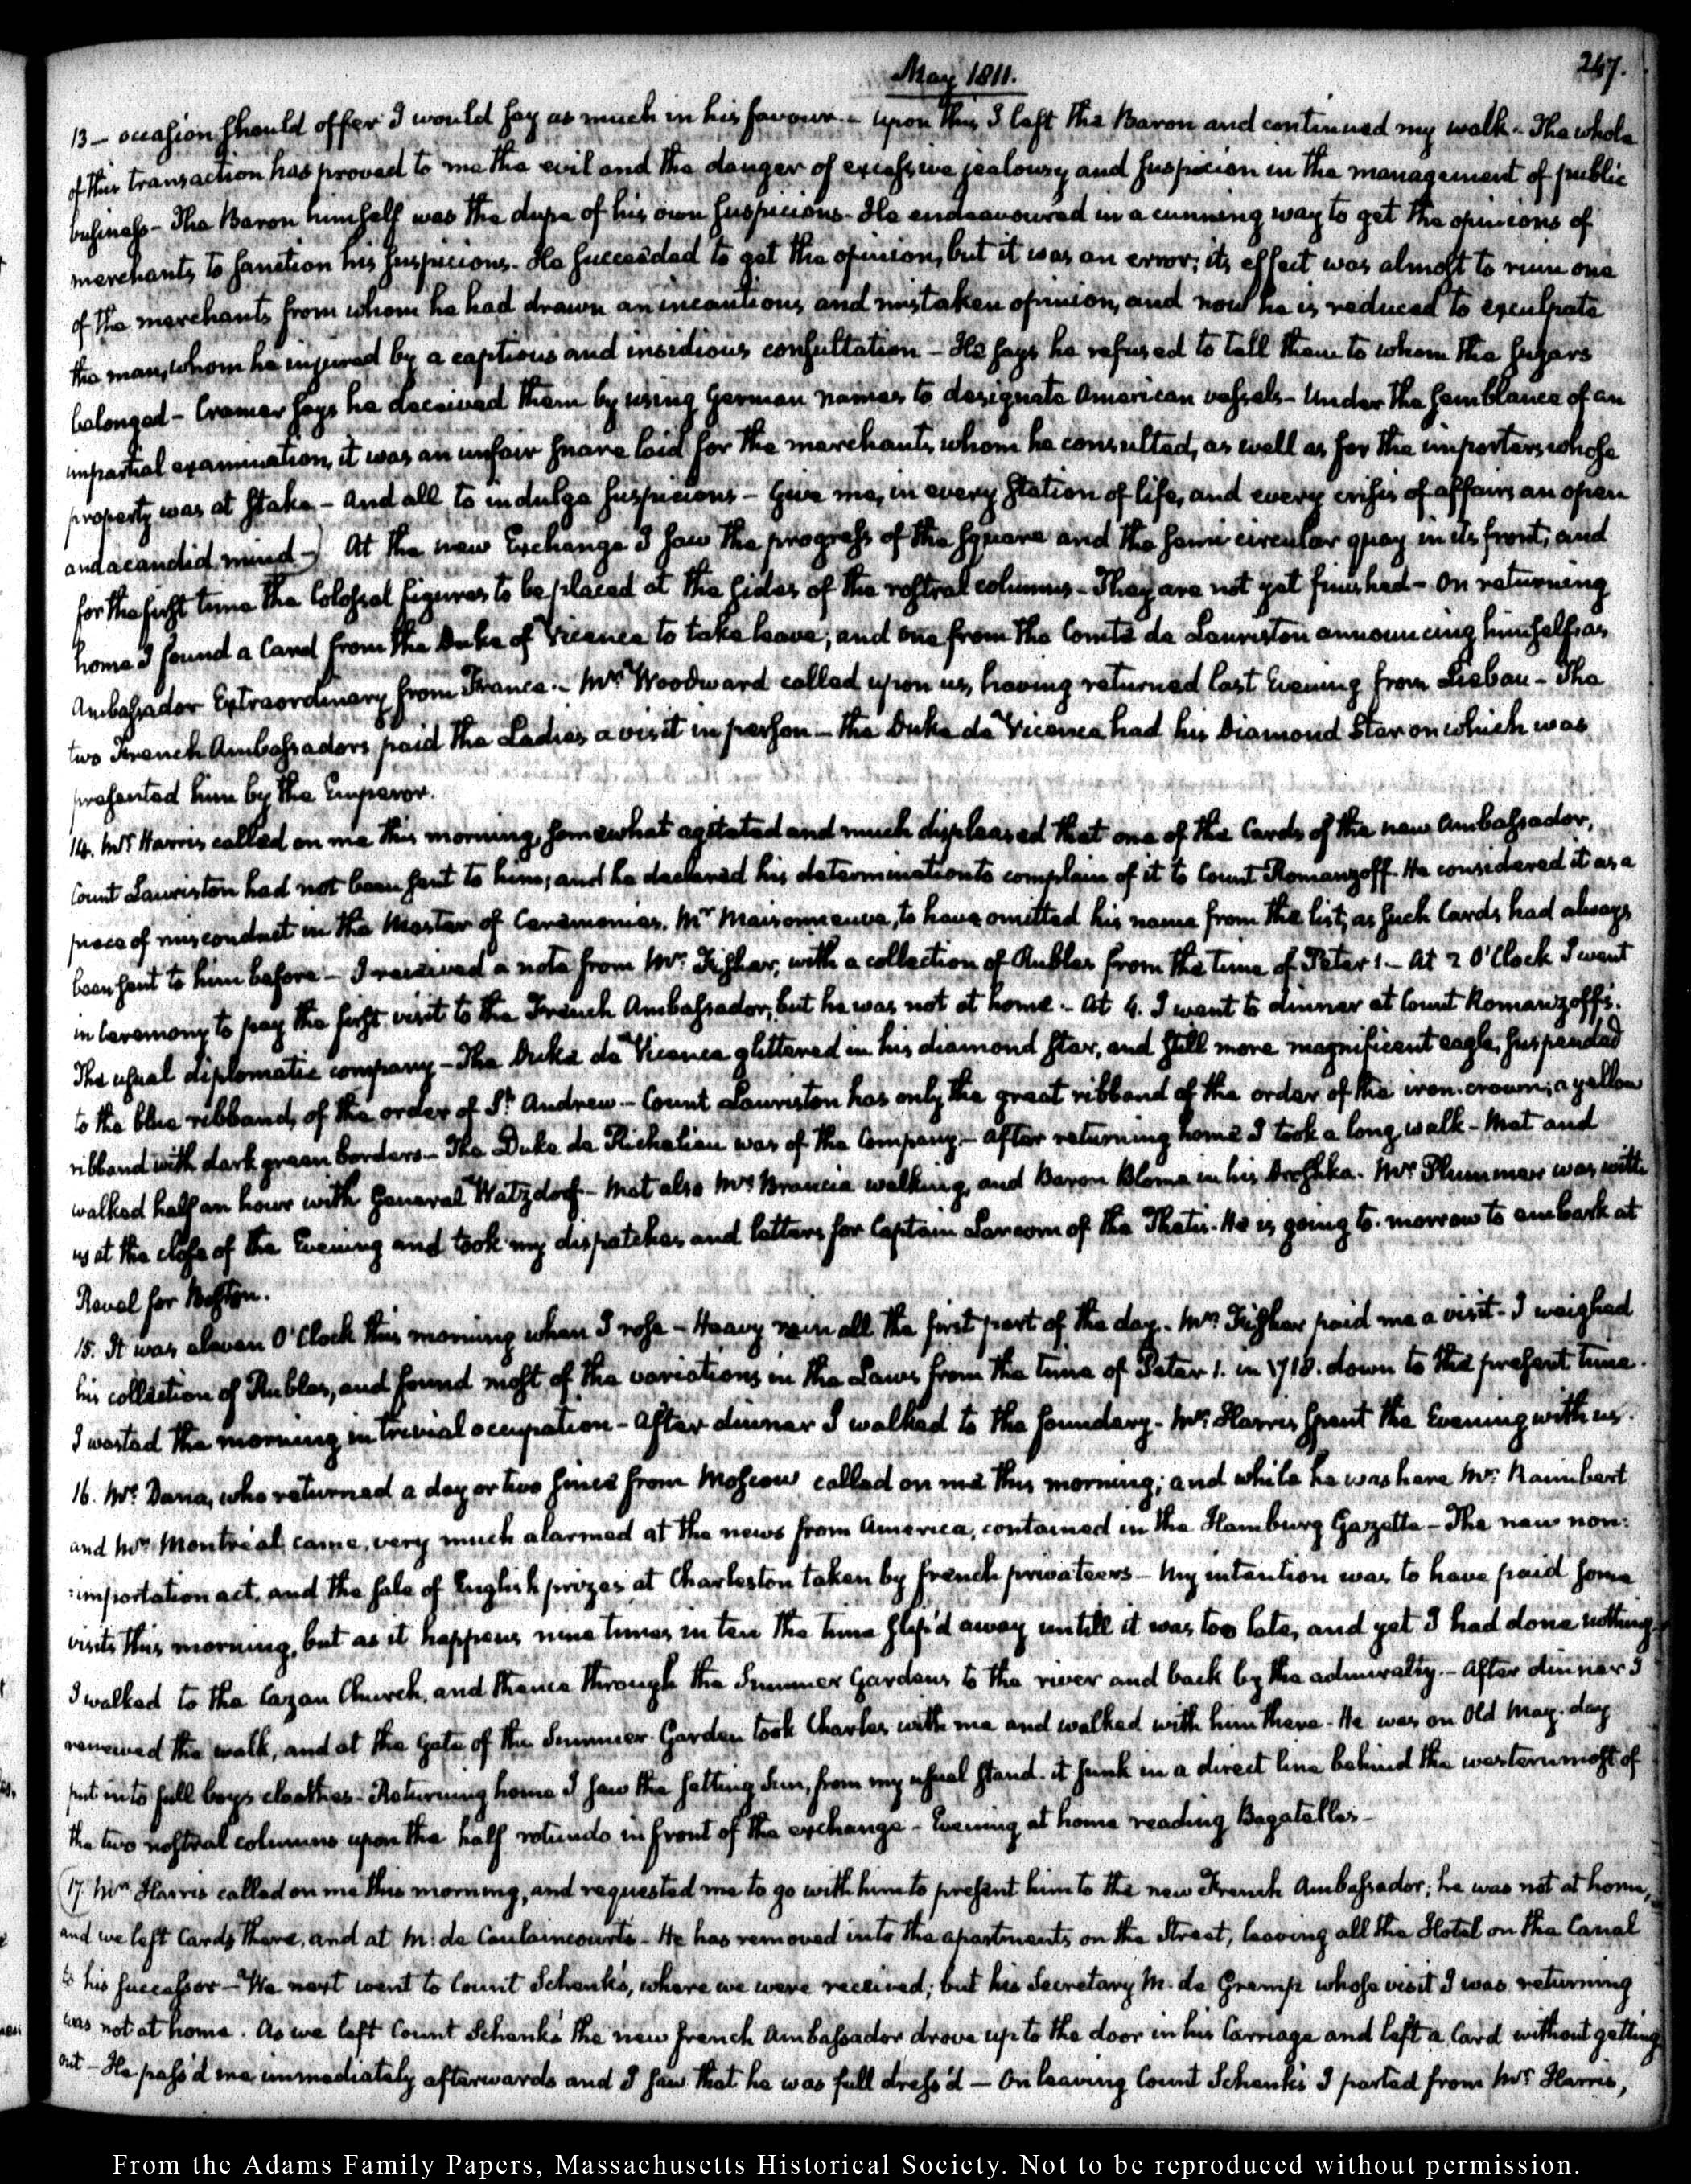 May 1811.
247.
13 — occasion should offer I would say as much in his favour. — Upon this I left the Baron and continued my walk — The whole
of this transaction has proved to me the evil and the danger of excessive jealousy and suspicion in the management of public
business — The Baron himself was the dupe of his own suspicions — He endeavoured in a cunning way to get the opinions of
merchants to sanction his suspicions. He succeeded to get the opinion, but it was an error; its effect was almost to ruin one
of the merchants from whom he had drawn an incautious and mistaken opinion, and now he is reduced to exculpate
the man, whom he injured by a captious and insidious consultation — He says he refused to tell them to whom the sugars
belonged — Cramer says he deceived them by using German names to designate American vessels — Under the semblance of an
impartial examination, it was an unfair snare laid for the merchants whom he consulted, as well as for the importers whose
property was at stake — And all to indulge suspicions — Give me, in every station of life, and every crisis of affairs an open
and a candid mind —) At the new Exchange I saw the progress of the square and the semi circular quay in its front; and
for the first time the Colossal figures to be placed at the sides of the rostral columns — They are not yet finished — On returning
home I found a Card from the Duke of Vicence to take leave; and one from the Comte de Lauriston announcing himself as
Ambassador Extraordinary from France. — Mr. Woodward called upon us, having returned last Evening from Liebau — The
two French Ambassadors paid the Ladies a visit in person — the Duke de Vicence had his Diamond Star on which was
presented him by the Emperor.
14. Mr. Harris called on me this morning, somewhat agitated and much displeased that one of the Cards of the new Ambassador,
Count Lauriston had not been sent to him; and he declared his determination to complain of it to Count Romanzoff. He considered it as a
piece of misconduct in the Master of Ceremonies, Mr. Maisonneuve, to have omitted his name from the list, as such Cards had always
been sent to him before — I received a note from Mr. Fishar, with a collection of Rubles from the time of Peter 1. — At 2 O'Clock I went
in ceremony to pay the first visit to the French Ambassador; but he was not at home. — At 4. I went to dinner at Count Romanzoff's.
The usual diplomatic company — The Duke de Vicence glittered in his diamond star, and still more magnificent eagle, suspended
to the blue ribband, of the order of St. Andrew — Count Lauriston has only the great ribband of the order of the iron-crown; a yellow
ribband with dark green borders — The Duke de Richelieu was of the Company. — After returning home I took a long walk — Met and
walked half an hour with General Watzdorf — Met also Mr. Brancia walking, and Baron Blome in his Droshka. Mr. Plummer was with
us at the close of the Evening and took my dispatches and letters for Captain Larcom of the Thetis. He is going to-morrow to embark at
Reval for Boston.
15. It was eleven O'Clock this morning when I rose — Heavy rain all the first part of the day. Mr. Fishar paid me a visit — I weighed
his collection of Rubles, and found most of the variations in the Laws from the time of Peter 1. in 1718. down to the present time.
I wasted the morning in trivial occupation — After dinner I walked to the foundery. Mr. Harris spent the Evening with us.
16. Mr. Dana, who returned a day or two since from Moscow called on me this morning; and while he was here Mr. Raimbert
and Mr. Montréal came, very much alarmed at the news from America, contained in the Hamburg Gazette — The new non-
:importation act, and the sale of English prizes at Charleston taken by french privateers — My intention was to have paid some
visits this morning, but as it happens nine times in ten the time slip'd away untill it was too late, and yet I had done nothing.
I walked to the Cazan Church, and thence through the Summer Gardens to the river and back by the admiralty. — After dinner I
renewed the walk, and at the Gate of the Summer Garden took Charles with me and walked with him there — He was on Old May-day
put into full boys cloathes — Returning home I saw the setting Sun, from my usual stand. it sunk in a direct line behind the westernmost of
the two rostral columns upon the half rotundo in front of the exchange — Evening at home reading Bagatelles —
(17. Mr. Harris called on me this morning, and requested me to go with him to present him to the new French Ambassador; he was not at home,
and we left Cards there, and at M. de Caulaincourt's — He has removed into the apartments on the Street, leaving all the Hotel on the Canal
to his successor — We next went to Count Schenk's, where we were received; but his Secretary M. de Gremp whose visit I was returning
was not at home. As we left Count Schenk's the new french Ambassador drove up to the door in his Carriage and left a Card without getting
out — He pass'd me immediately afterwards and I saw that he was full dress'd — On leaving Count Schenk's I parted from Mr. Harris,
From the Adams Family Papers, Massachusetts Historical Society. Not to be reproduced without permission.